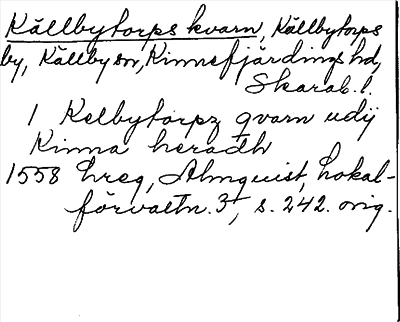 Källbytorps kvarn, Källbytorps
by, Källby sn, Kinnefjärdings hd,
Skarab. l.
1 Kelbytorpz qvarn udij
Kinna heradh
1558 Lreg, Almquist, Lokal-
förvaltn. 3, s. 242. orig.